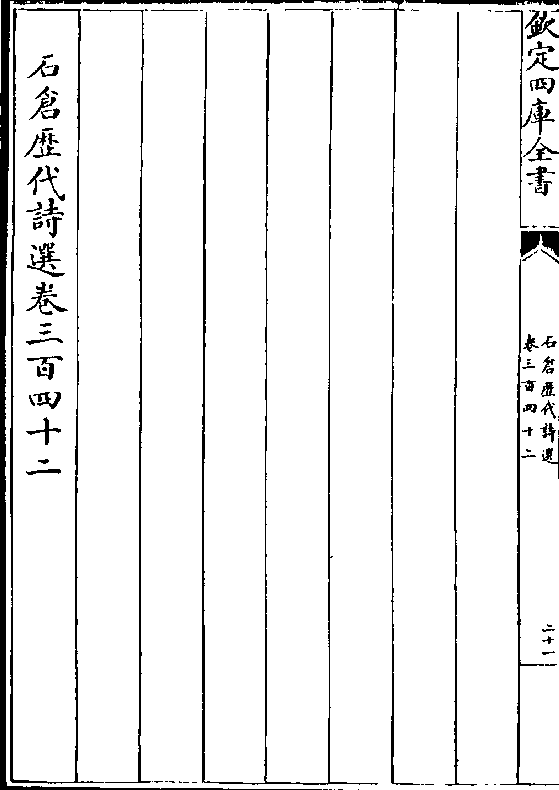 欽定四庫全書
石倉歷代詩選
卷三百四十二
二十一
石倉歷代詩選卷三百四十二